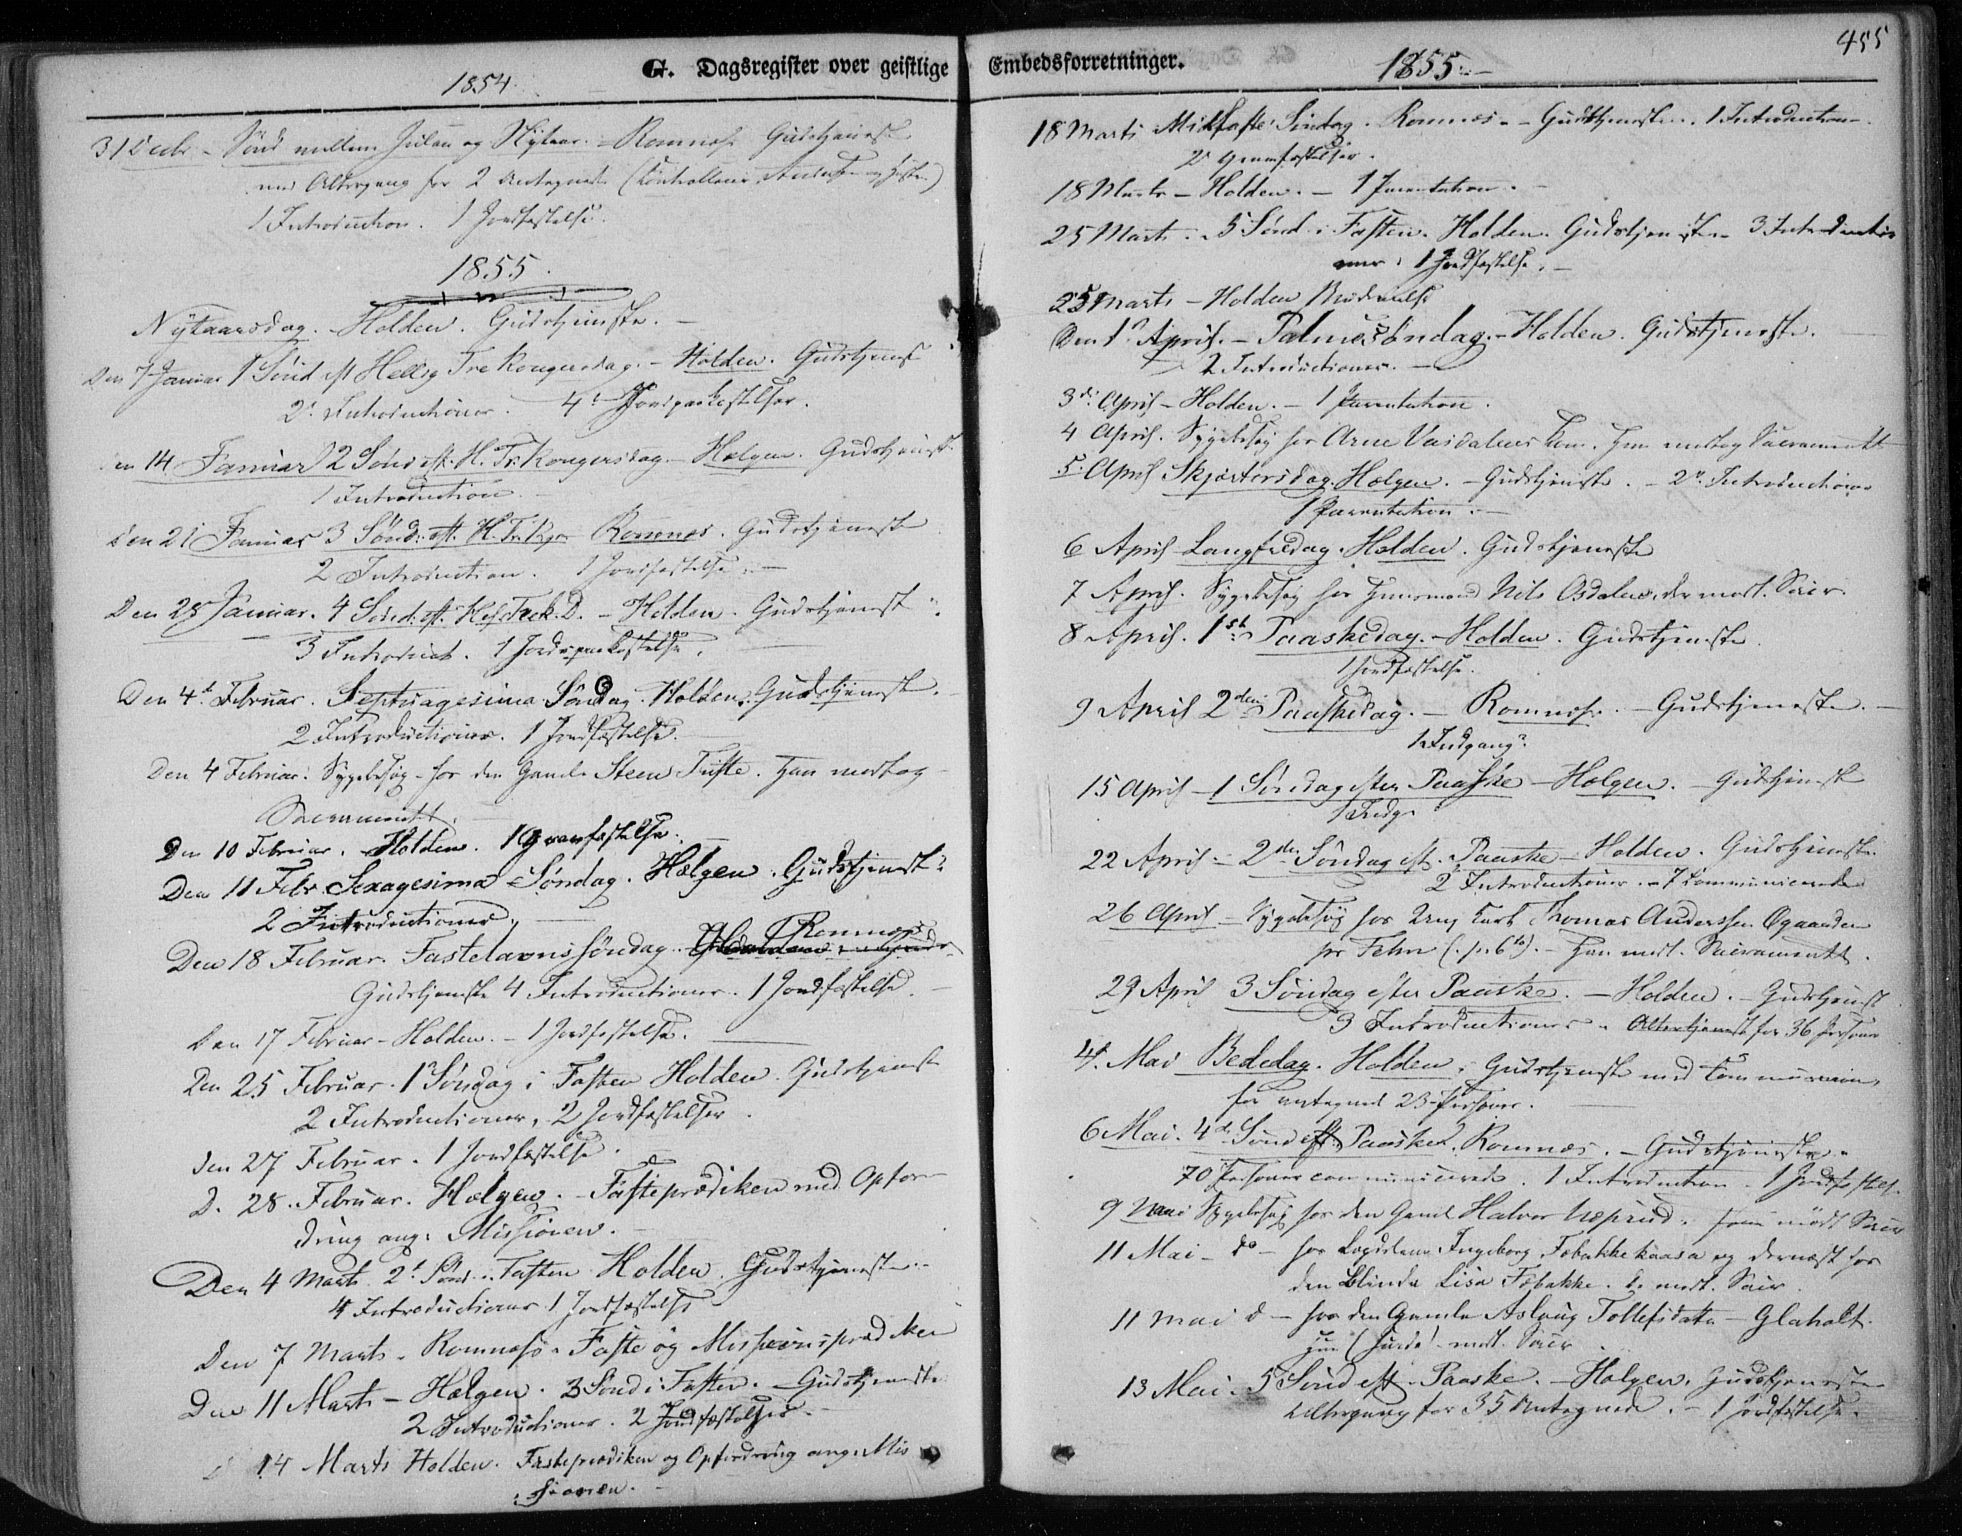 G. Dagsregister over geistlige
1854
31 Decbr. - Sönd mellem Julen og Nytaar. - Romnæs Gudstjeneste
med Altergang for 2 Antegnede
1 Introduction. 1 Jordfæstelse.
1855.
Nytaarsdag. Holden. Gudstjeneste. -
Den 7 Januar 1 Sönd eft Hellig Tre Kongersdag. - Holden. Gudstjenest
2 Introductioner. 4 Jordpaakastelser.
en 14 Januar 2 Sönd eft. H. Tr. Kongersdag. Hælgen. Gudstjenest.
1 Introduction.
Den 21 Januar 3 Sönd: eft. H. Tr. Kgr Romnæs. Gudstjeneste
2 Introduction. 1 Jordfæstelse. -
Den 28 Januar. 4 Sönd. eft. D. - Holden. Gudstjenest
3 Introduct. 1 Jordpaakastelse.
Den 4de Februar. Septuagesima Søndag. Holden. Gudstjeneste.
2 Introductioner. 1 Jordfæstelse.
Den 4 Februar. Sygebesøg - hos den Gamle Steen Tufte. Han modtog
Sacramentet.
Den 10 Februar. Holden. 1 Gravfæstelse.
Den 11 Febr. Sexagesima Søndag. Hælgen. Gudstjenest
2 Introductioner.
Romnæs
Den 18 Februar. Fastelavns söndag.
Gudstjeneste 4 Introductioner. 1 Jordfæstelse.
Den 17 Februar - Holden. - 1 Jordfæstelse.
Den 25 Februar. 1 Søndag i Fasten Holden. Gudstjeneste
2 Introductioner, 2 Jordfæstelser.
Den 27 Februar. 1 Jordfæstelse.
D. 28. Februar. Hælgen. - Fasteprædiken med Opfor-
dring ang. Missionen.
Den 4 Marts 2d Sönd. i Fasten Holden. Gudstjeneste.
4 Introductioner 1 Jordfæstelse
Den 7 Marts. Romnæs. Faste og Missionsprædiken
Den 11 Marts - Hælgen. 3 Sönd i Fasten. - Gudstjeneste
2 Introductioner. 2 Jordfæstelser.
14 Marts Holden. Fasteprædiken og Opfordring ang. Mis
sionen.
Embedsforretninger.
1855.
455
18 Marts Midfaste Søndag. Romnæs - Gudstjeneste. 1 Introduction
2 Gravfæstelser.
18 Marts - Holden. - 1 Parentation.
25 Marts. 5 Sønd. i Fasten. Holden. Gudstjeneste. 3 Introductio
ner. 1 Jordfæstelse.
25 Marts - Holden Brudevielse
Den 1 April. - Palmesøndag. - Holden. Gudstjeneste.
2 Introductioner.
3die April - Holden. - 1 Parentation.
4 April. Sygebesøg hos Arne Kone. Hun modtog Sacramentet
5 April Skjærtorsdag. Hælgen. - Gudstjeneste. - 2 Introductioner
1 Parentation. -
6 April Langfredag. Holden. Gudstjeneste
7 April. Sygebesøg hos Huusmand Nils Osdalen, der modt. Sacr.
8 April. 1ste Paaskedag. - Holden. Gudstjeneste
1 Jordfæstelse.
9 April 2den Paaskedag. - Romnæs. - Gudstjeneste. -
1 Indgang.
15 April - 1 Söndag efter Paaske - Hælgen. - Gudstjenest
1 Indg.
22 April - 2den Söndag eft. Paaske - Holden. Gudstjeneste
2 Introductioner. - 7 Communicerede
26 April - Sygebesøg hos Ung Karl Thomas Anderssen Øgaarden
pr Fehn. - Han modt. Sacramentet.
29 April 3 Söndag efter Paaske. - Holden. - Gudstjenest
3 Introductioner. Altertjenest for 36 Personer
4. Mai Bededag. Holden. Gudstjeneste med Communion,
for antegnede 23 Personer.
6 Mai. 4d Sønd eft Paaske. Romnæs. - Gudstjeneste.
70 Personer communicerede. 1 Introduction. 1 Jordfæstels.
9 Mai Sygebesøg hos den Gamle Halvor Næsrud. Han modt Sacr
11 Mai - do - hos Ingeborg Fæbakkekaasa og dernæst hos
den Blinde Lisa Fæbakke. modt. Sacr.
11 Mai d - hos den Gamle Aslaug Tollefsdatr - Glaholt.
Hun modt. Sacr.
13 Mai. 5 Sönd eft. Paaske. - Hælgen. Gudstjeneste
Altergang for 35 Antegnede. - 1 Jordfæstelse.